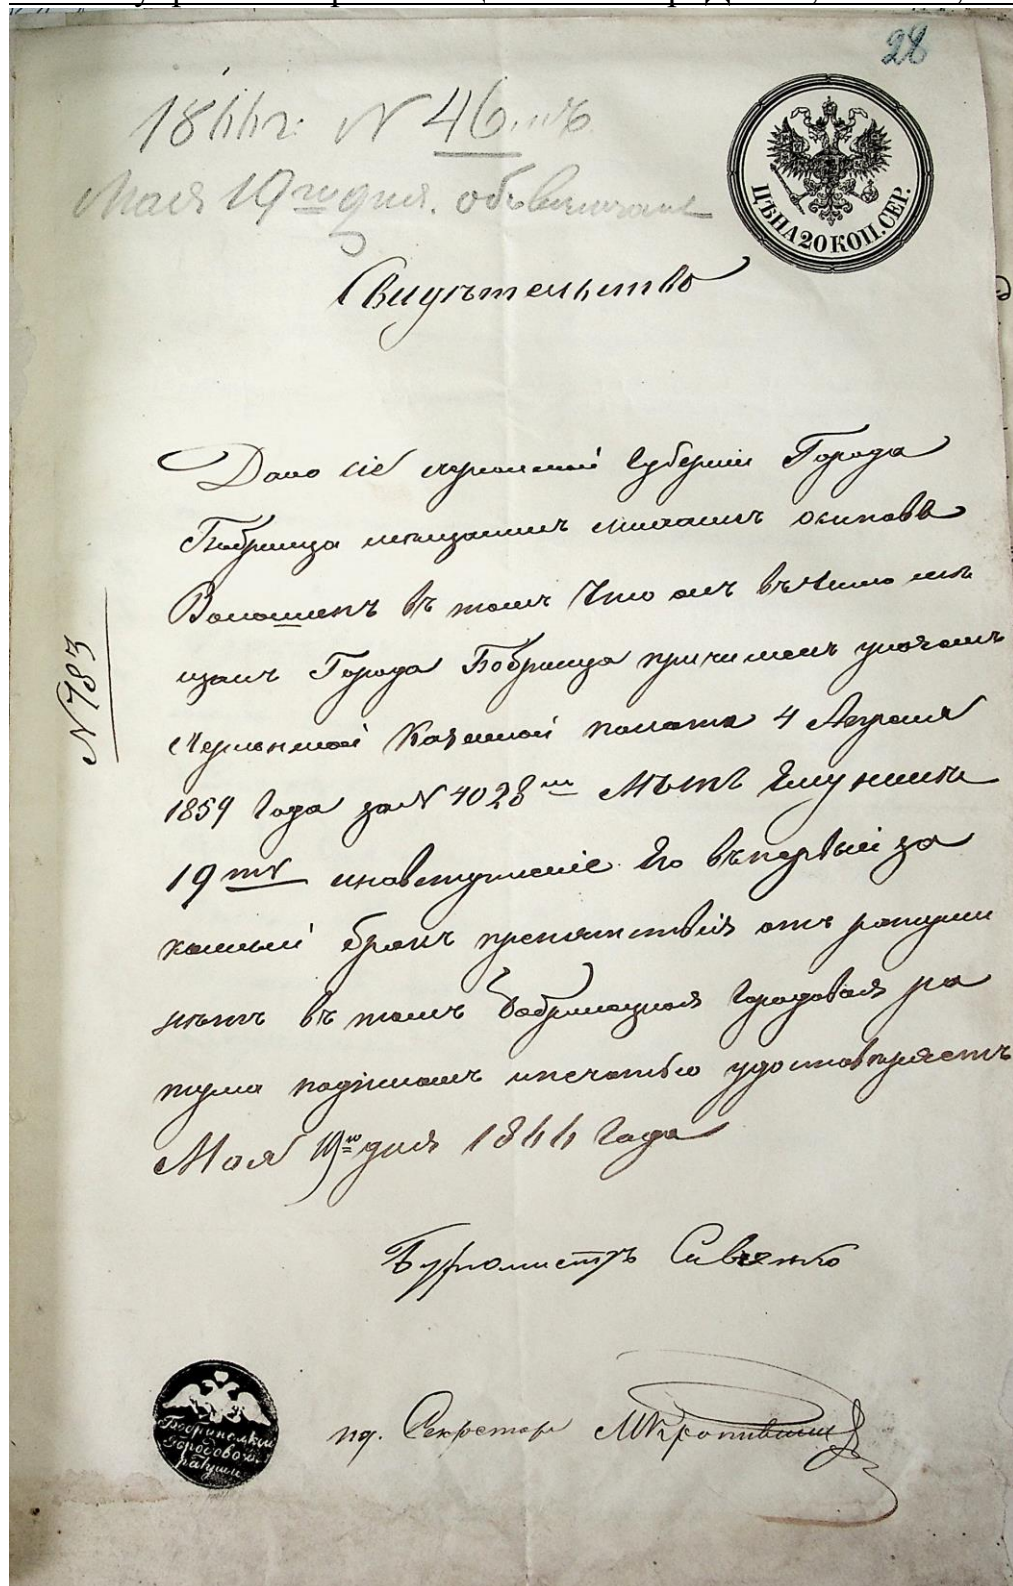 28
1866 г. N 46.
Мая 19го дня. обвѣнчанъ
ЦѢНА 20 КОП. СЕР.
Свидѣтельство
Дано сіе Херсонской Губерніи Города
Бобринца мещанину осипову
въ томъ Что онъ въ Число мѣ
щанъ Города Бобринца причисленъ указомъ
Херсонской Казенной палаты 4 Апреля
1859 Года за N 4028 мъ Лѣтъ Ему нынѣ
19 ть инавступленіе Его въпервый за
конный бракъ препятствія отъ ратуши
нѣтъ въ томъ Бобринецкая Городовая ра
туша подписомъ ипечатью удостовѣряетъ
Мая 19го дня 1866 Года
N 783
Бургомистръ Савенко
Бобринецкой
Городовой
ратуши
ид. Секретаря МКропивницк